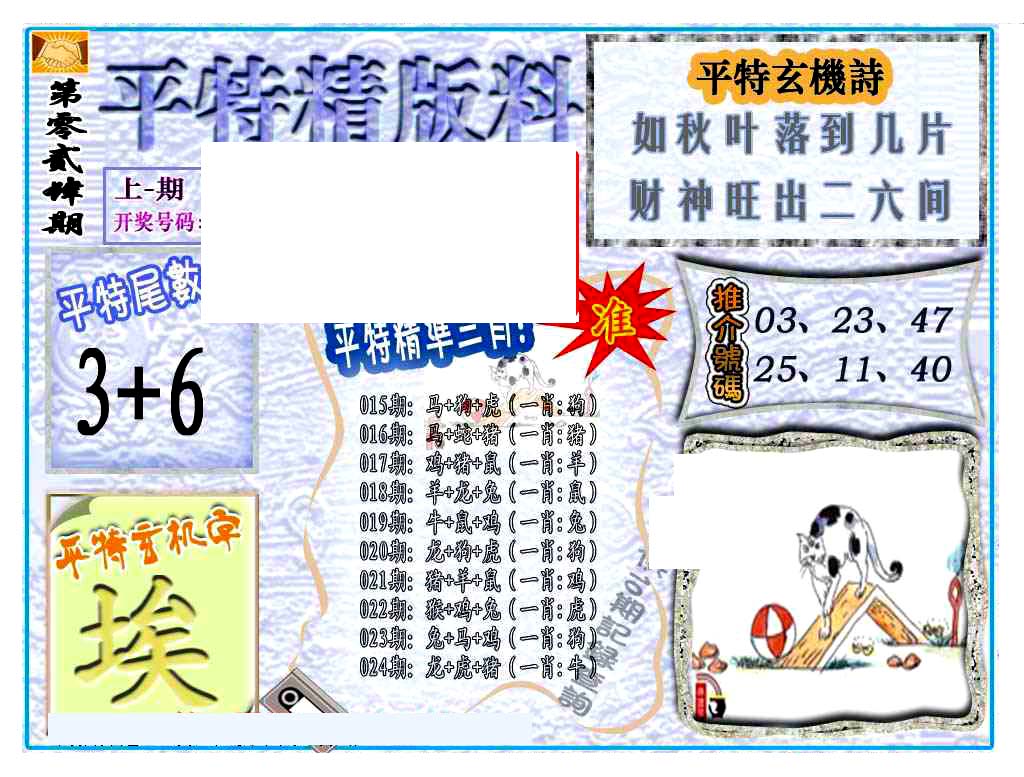 第零贰肆期
平特精版料
上-期
开奖号码:
平特玄機詩
如秋叶落到几片
财神旺出二六间
平特尾數
3+6
平特精準三肖!
准
推介號碼
03、23、47
25、11、40
015期: 马+狗+虎(一肖:狗)
016期: 马+蛇+猪(一肖:猪)
017期: 鸡+猪+鼠(一肖:羊)
018期: 羊+龙+兔(一肖:鼠)
019期: 牛+鼠+鸡(一肖:兔)
020期: 龙+狗+虎(一肖:狗)
021期: 猪+羊+鼠(一肖:鸡)
022期: 猴+鸡+兔(一肖:虎)
023期: 兔+马+鸡(一肖:狗)
024期: 龙+虎+猪(一肖:牛)
平特玄机字
埃
期記録查詢